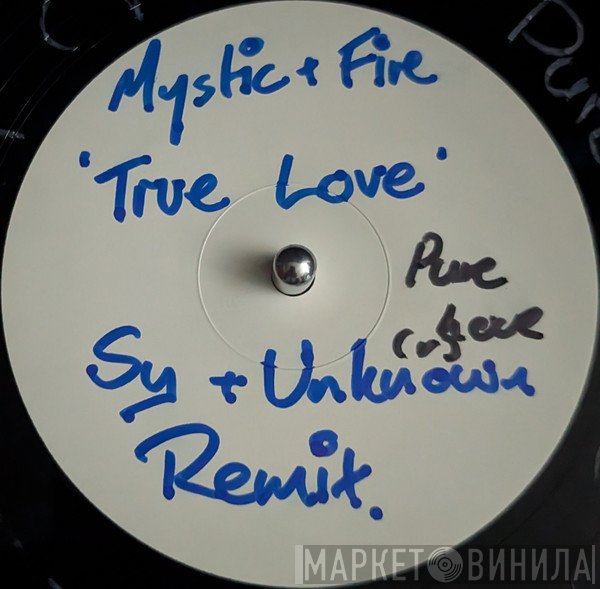 Mystic + Fire
'True Love'
Pure
Love
Sy + Unknown
Remix.
Pure
МАРКЕТ ВИНИЛА